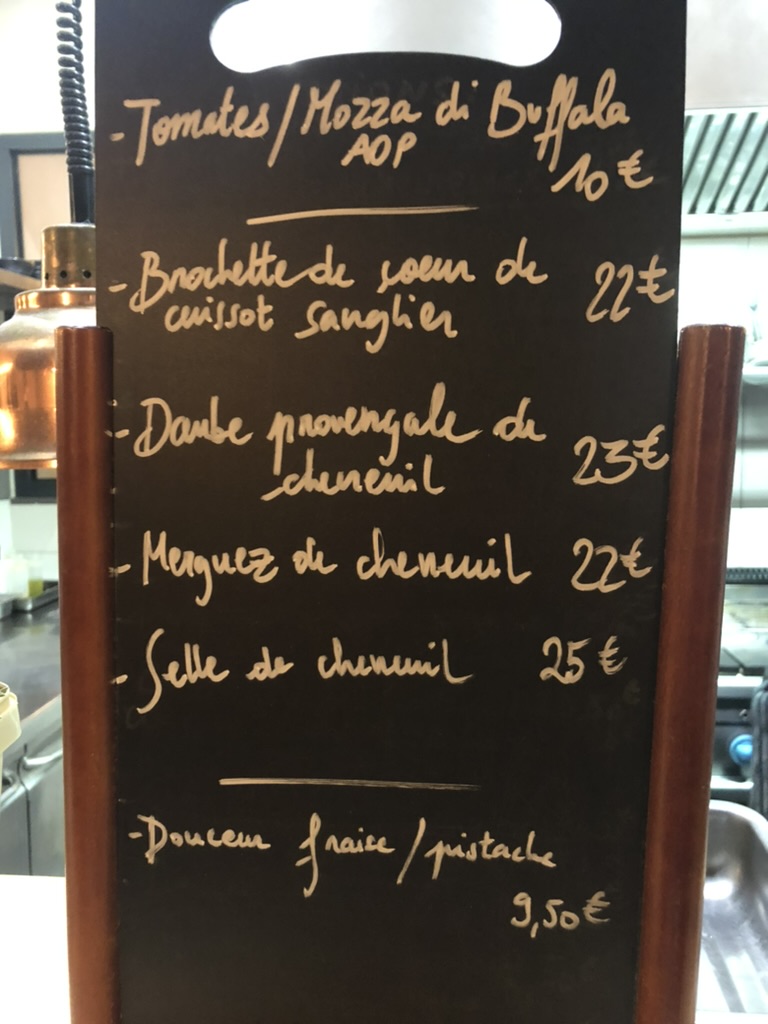 - Tomates / Mozza di Buffala
AOP
10€
- Brochette de coeur de 22€
cuissot sanglier
- Daube provençale de
chevreuil 23€
- Merguez de chevreuil 22€
- Selle de chevreuil 25€
- Douceur fraise / pistache
9,50€